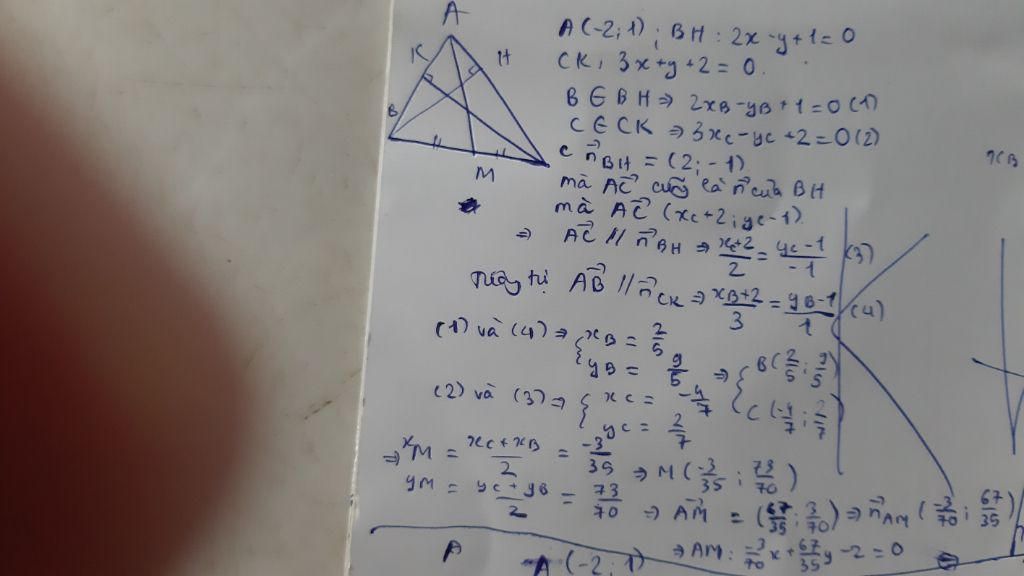 A
K
H
B
M
C
A(-2;1); BH: 2x-y+1=0
CK: 3x+y+2=0.
B∈BH ⇒ 2xB-yB+1=0 (1)
C∈CK ⇒ 3xC-yC+2=0 (2)
n⃗BH = (2;-1)
mà AC⃗ cũg là n⃗ của BH
mà AC⃗ (xC+2; yC-1)
⇒ AC⃗ // n⃗BH ⇒ xC+2/2 = yC-1/-1 (3)
AB⃗ // n⃗CK ⇒ xB+2/3 = yB-1/1 (4)
(1) và (4) ⇒ { xB = 2/5
yB = 9/5 ⇒ { B(2/5; 9/5)
(2) và (3) ⇒ { xC = -4/7
yC = 2/7 C(-4/7; 2/7)
⇒ xM = xC+xB/2 = -3/35
yM = yC+yB/2 = 73/70 ⇒ M(-3/35; 73/70)
⇒ AM⃗ = (67/35; 3/70) ⇒ n⃗AM (-3/70; 67/35)
⇒ AM: -3/70x+67/35y-2=0
A
A(-2;1)
xB